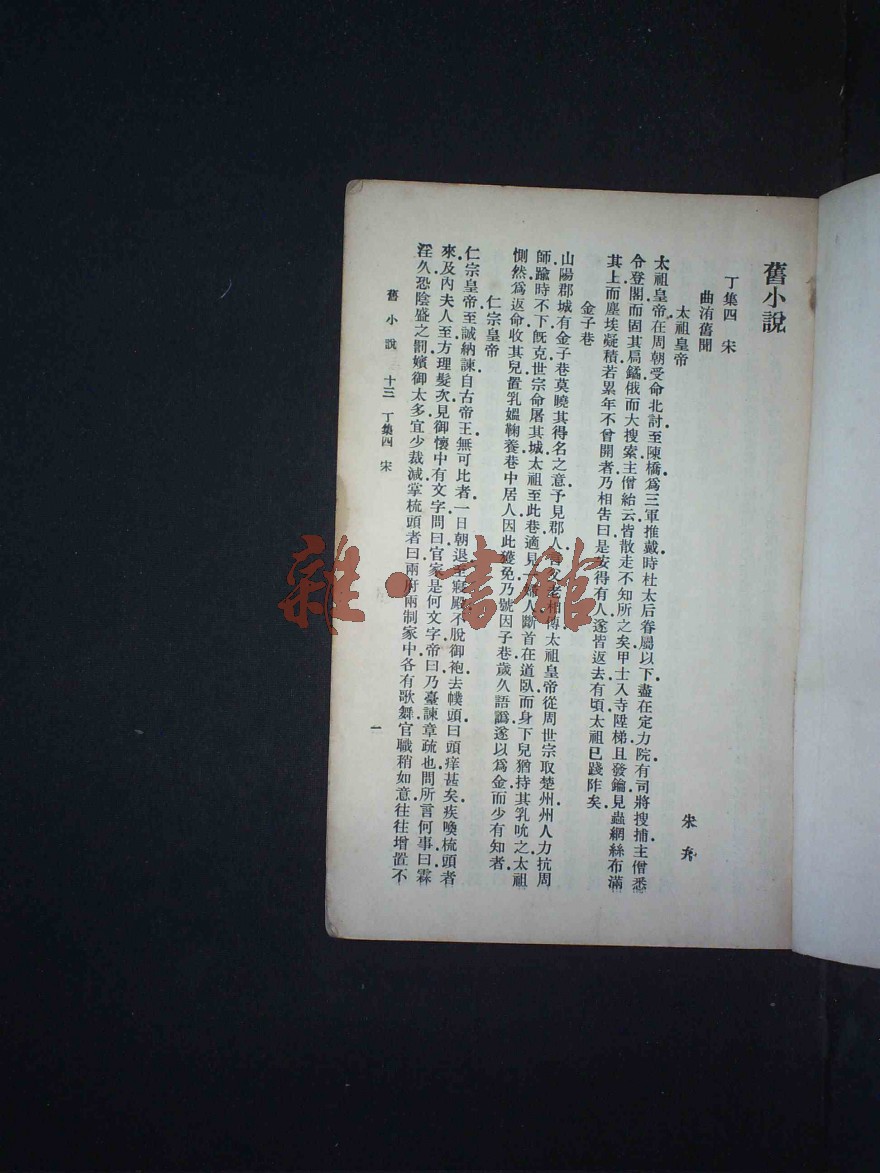 舊小說
丁集四 宋
曲洧舊聞
朱弁
太祖皇帝
太祖皇帝在周朝受命北討.至陳橋.爲三軍推戴.時杜太后眷屬以下.盡在定力院.有司將搜捕.主僧悉
令登閣.而固其扃鐍.俄而大搜索.主僧紿云.皆散走不知所之矣.甲士入寺.陞梯且發鑰.見蟲網絲布滿
其上.而塵埃凝積.若累年不曾開者.乃相告曰.是安得有人.遂皆返去.有頃.太祖已踐阼矣.
金子巷
山陽郡城有金子巷.莫曉其得名之意.予見郡人父老相傳.太祖皇帝從周世宗取楚州.州人力抗周
師.踰時不下.旣克.世宗命屠其城.太祖至此巷.適見一婦人斷首在道臥.而身下兒猶持其乳吮之.太祖
惻然爲返命.收其兒.置乳媼鞠養.巷中居人.因此獲免.乃號因子巷.歲久語譌.遂以爲金.而少有知者.
仁宗皇帝
仁宗皇帝至誠納諫.自古帝王無可比者.一日朝退.至寢殿.不脫御袍.去幞頭曰.頭痒甚矣.疾喚梳頭者
來.及內夫人至.方理髮.次見御懷中有文字.問曰.官家是何文字.帝曰.乃臺諫章疏也.問所言何事.曰.霖
淫久.恐陰盛之罰.嬪御太多.宜少裁減.掌梳頭者曰.兩府兩制家中各有歌舞.官職稍如意.往往增置不
舊小說 十三 丁集四 宋
一
雜·書館